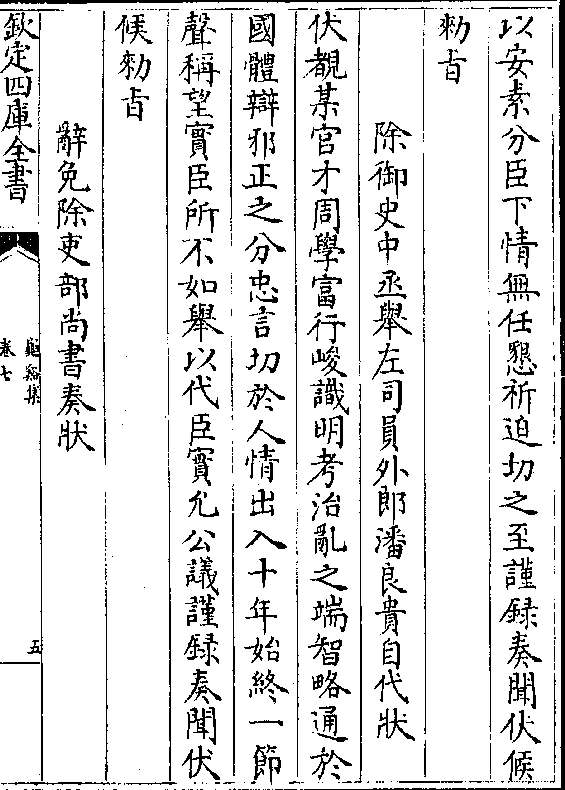 以安素分臣下情無任懇祈迫切之至謹録奏聞伏候
勅㫖
除御史中丞舉左司員外郎潘良貴自代狀
伏覩某官才周學富行峻識明考治亂之端智略通於
國體辯邪正之分忠言切於人情出入十年始終一節
聲稱望實臣所不如舉以代臣實允公議謹録奏聞伏
候勅㫖
辭免除吏部尚書奏狀
欽定四庫全書
龜谿集
卷七
五